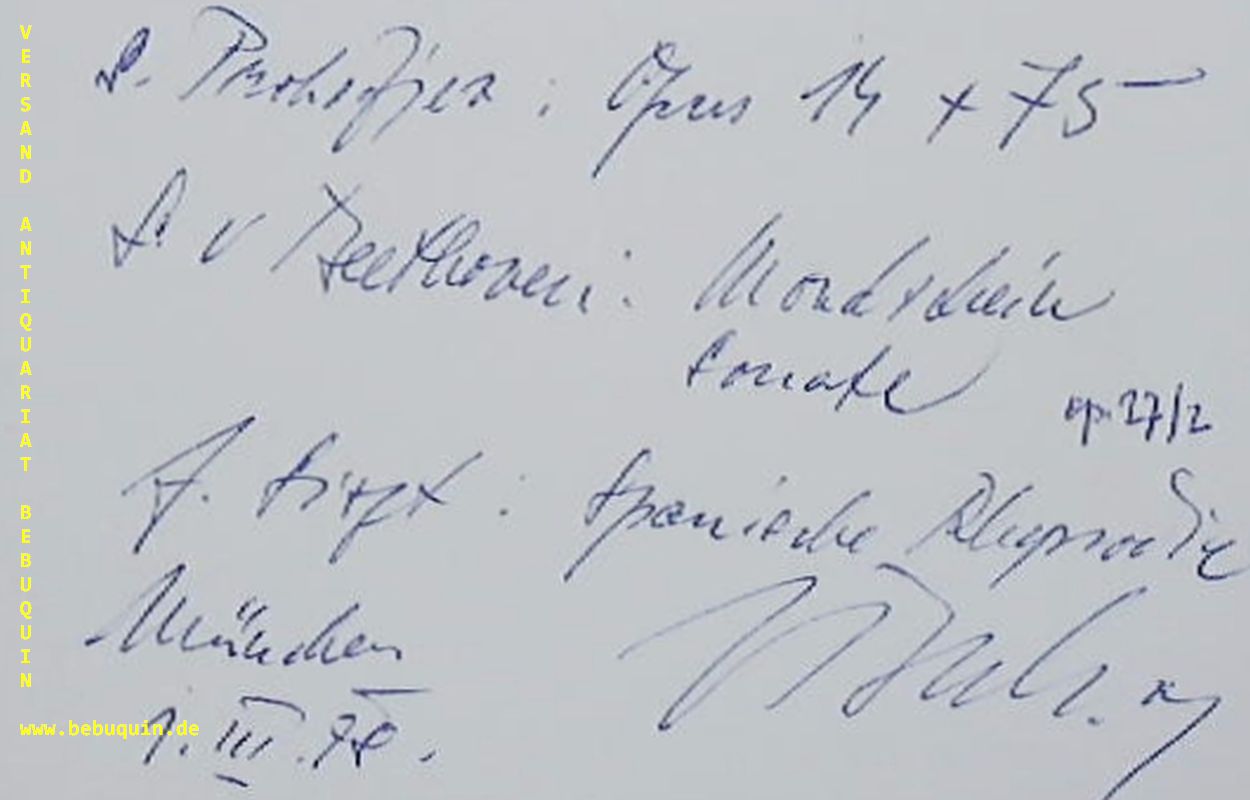 S. Prokofjew : Opus 14 + 75
L. v Beethoven : Mondschein
Sonate
op. 27/2
F. Liszt : Spanische Rhapsodie
München
1. III. 78.
VERSAND ANTIQUARIAT BEBUQUIN
www.bebuquin.de